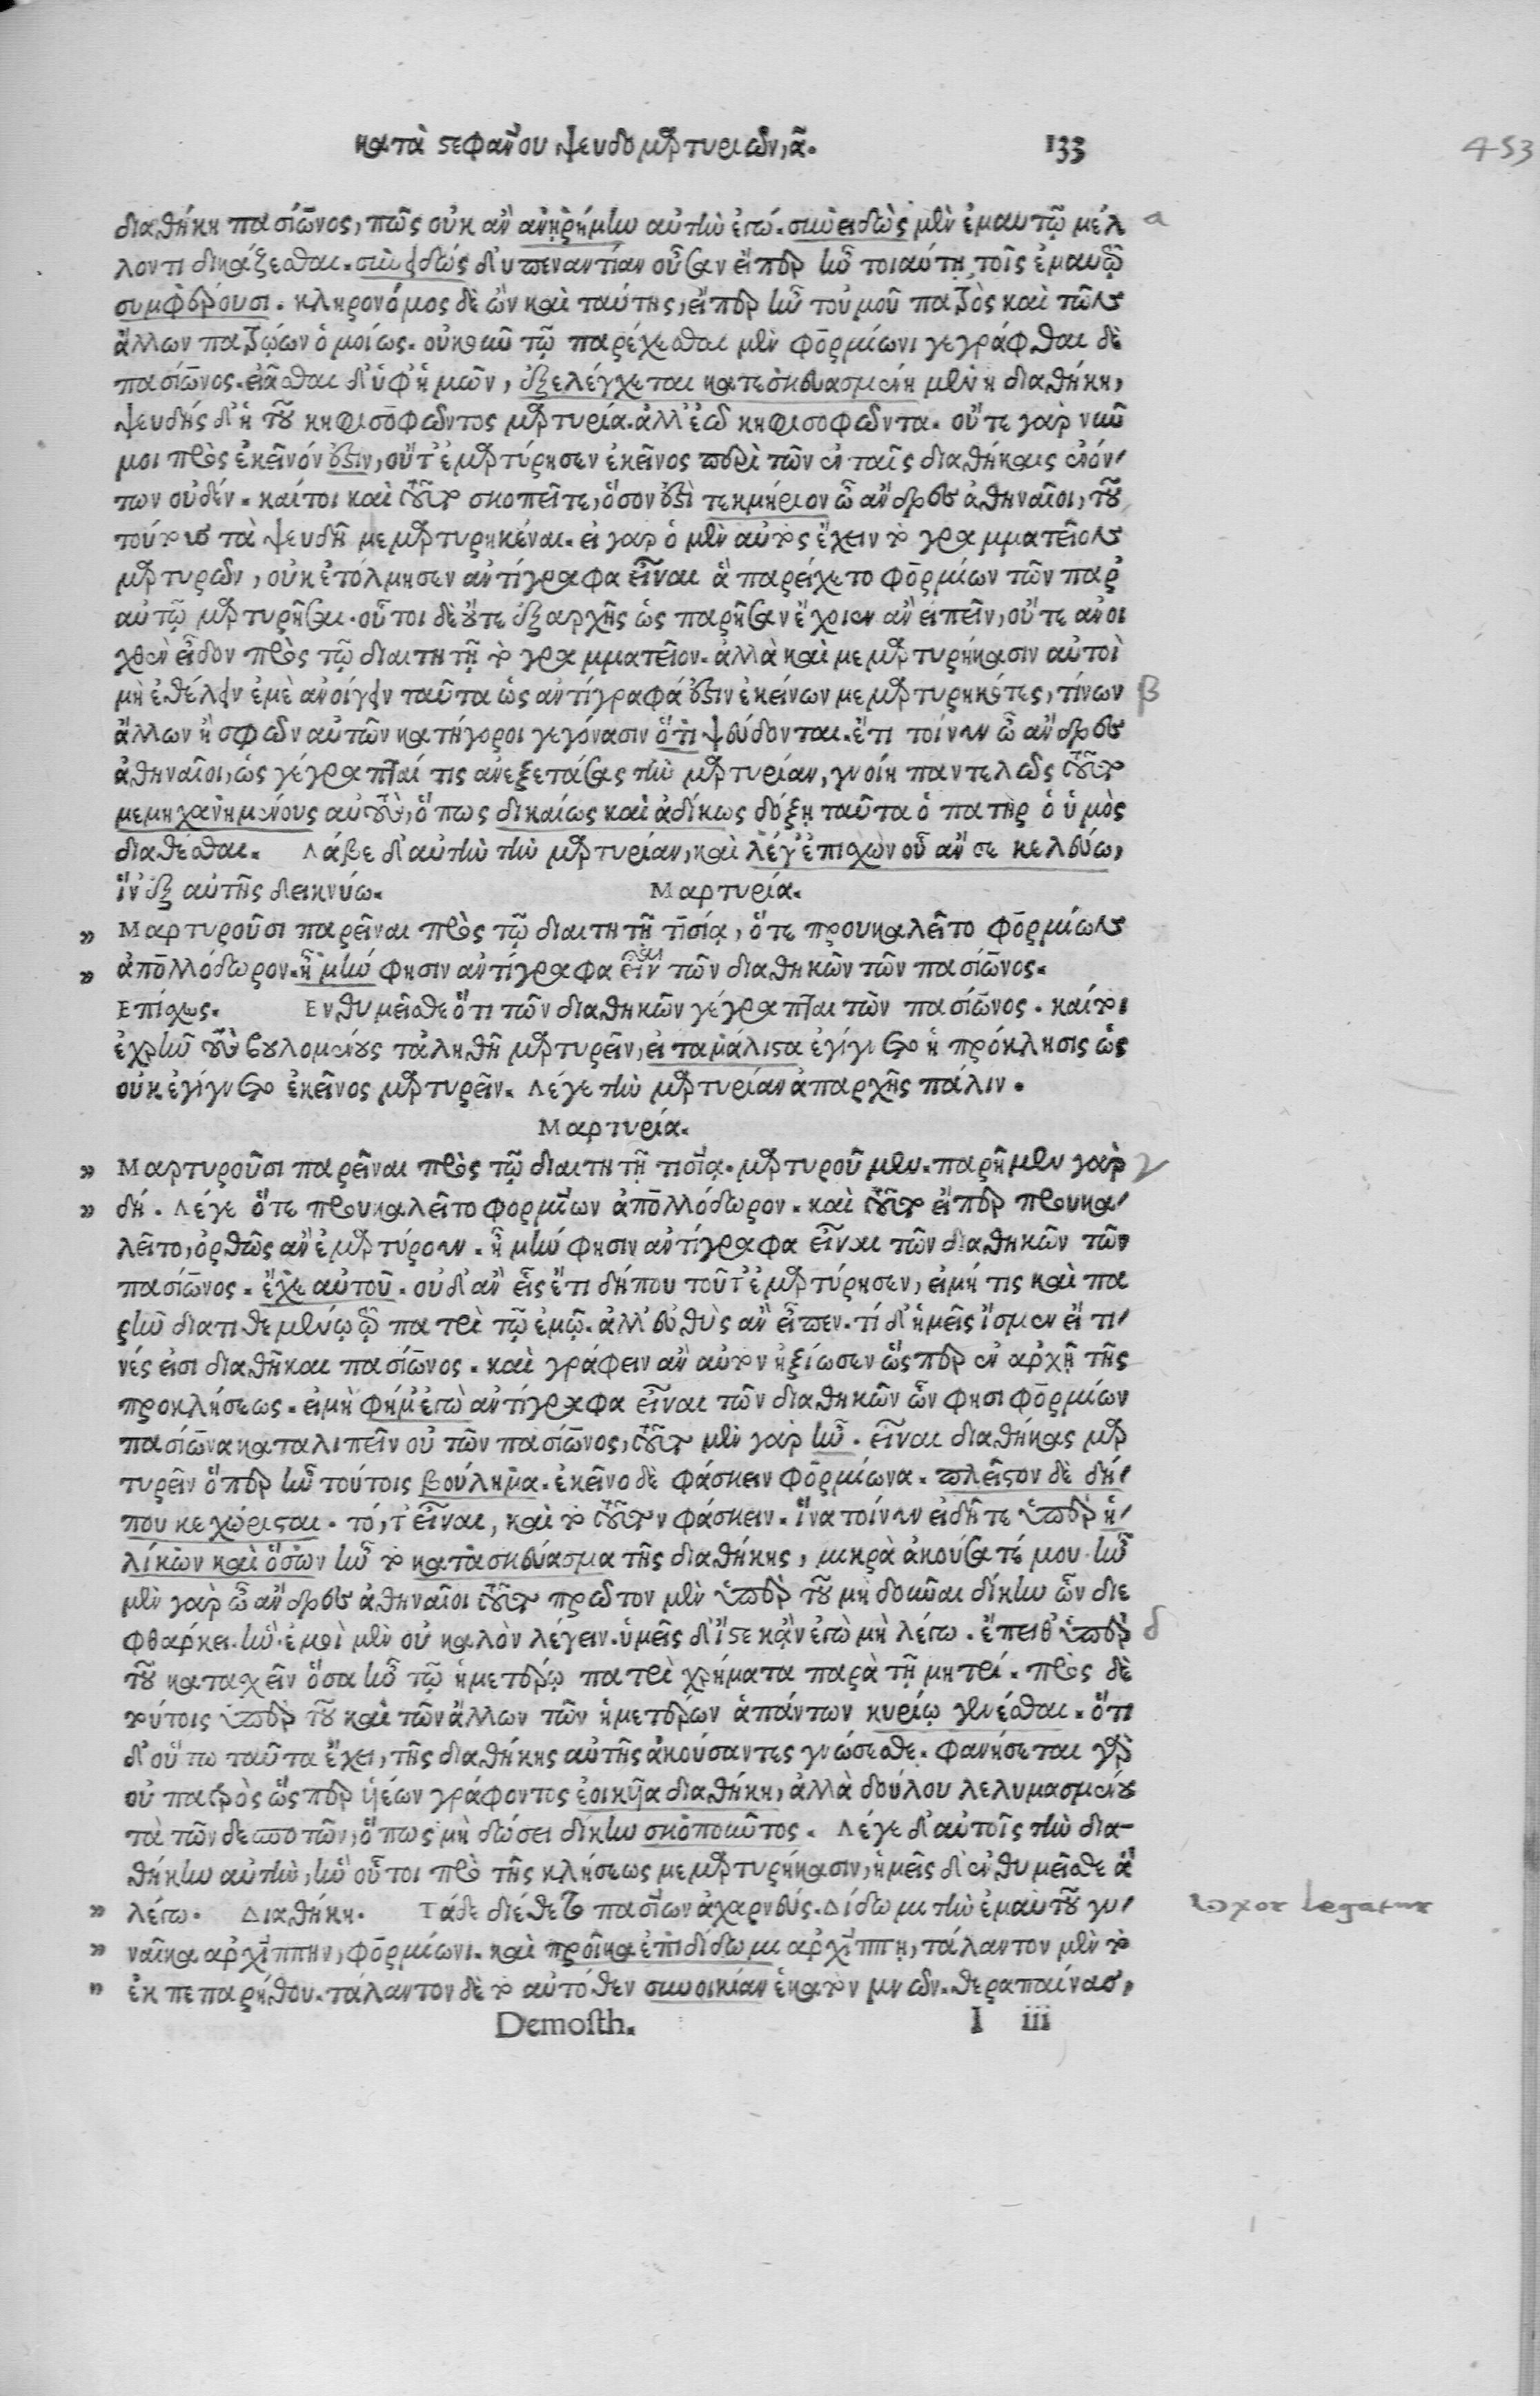 κατὰ στεφάνου ψευδομαρτυριῶν, α. 133
453
διαθήκη πασίωνος, πῶς οὐκ ἂν ἀνῃρήμην αὐτὴν ἐγώ. συνειδὼς μὲν ἐμαυτῷ μέλ α
λοντι δικάζεσθαι. συνειδώς δ' ὑπεναντίαν οὖσαν εἴπερ ἦν τοιαύτη τοῖς ἐμαυτῷ
συμφέρουσι. κληρονόμος δὲ ὢν καὶ ταύτης, εἴπερ ἦν τοὐμοῦ πατρὸς καὶ τῶν
ἄλλων πατρῴων ὁμοίως. οὐκοῦν τῷ παρέχεσθαι μὲν φορμίωνι γεγράφθαι δὲ
πασίωνος. εἰᾶσθαι δ' ὑφ' ἡμῶν, ἐξελέγχεται κατεσκευασμένη μὲν ἡ διαθήκη,
ψευδής δ' ἡ τοῦ κηφισοφῶντος μαρτυρία. ἀλλ' ἐῶ κηφισοφῶντα. οὔτε γὰρ νῦν
μοι πρὸς ἐκεῖνόν ἐστιν, οὔτ' ἐμαρτύρησεν ἐκεῖνος περὶ τῶν ἐν ταῖς διαθήκαις ἐνόν
των οὐδέν. καίτοι καὶ τοῦτο σκοπεῖτε, ὅσον ἐστὶ τεκμήριον ὦ ἄνδρες ἀθηναῖοι, τοῦ
τούτους τὰ ψευδῆ μεμαρτυρηκέναι. εἰ γὰρ ὁ μὲν αὐτὸς ἔχειν τὸ γραμματεῖον
μαρτυρῶν, οὐκ ἐτόλμησεν ἀντίγραφα εἶναι ἃ παρείχετο φορμίων τῶν παρ'
αὐτῷ μαρτυρῆσαι. οὗτοι δὲ οὔτε ἐξαρχῆς ὡς παρῆσαν ἔχοιεν ἂν εἰπεῖν, οὔτε ἀνοι
χθὲν εἶδον πρὸς τῷ διαιτητῇ τὸ γραμματεῖον. ἀλλὰ καὶ μεμαρτυρήκασιν αὐτοὶ
μὴ ἐθέλειν ἐμὲ ἀνοίγειν ταῦτα ὡς ἀντίγραφά ἐστιν ἐκείνων μεμαρτυρηκότες, τίνων β
ἄλλων ἢ σφῶν αὐτῶν κατήγοροι γεγόνασιν ὅτι ψεύδονται. ἔτι τοίνυν ὦ ἄνδρες
ἀθηναῖοι, ὡς γέγραπταί τις ἀνεξετάσας τὴν μαρτυρίαν, γνοίη παντελῶς τοῦτο
μεμηχανημένους αὐτοὺς, ὅπως δικαίως καὶ ἀδίκως δόξῃ ταῦτα ὁ πατὴρ ὁ ὑμὸς
διαθέσθαι. Λάβε δ' αὐτὴν τὴν μαρτυρίαν, καὶ λέγ' ἐπισχὼν οὗ ἄν σε κελεύω,
ἵν' ἐξ αὐτῆς δεικνύω. Μαρτυρία.
" Μαρτυροῦσι παρεῖναι πρὸς τῷ διαιτητῇ τισίᾳ, ὅτε προυκαλεῖτο φορμίων
" ἀπολλόδωρον. ἣ μὴν φησιν ἀντίγραφα εἶναι τῶν διαθηκῶν τῶν πασίωνος.
Επίσχες. Ενθυμεῖσθε ὅτι τῶν διαθηκῶν γέγραπται τῶν πασίωνος. καίτοι
ἐχρῆν τοὺς βουλομένους τἀληθῆ μαρτυρεῖν, εἰ ταμάλιστα ἐγίγνετο ἡ πρόκλησις ὡς
οὐκ ἐγίγνετο ἐκεῖνος μαρτυρεῖν. Λέγε τὴν μαρτυρίαν ἀπαρχῆς πάλιν.
Μαρτυρία.
" Μαρτυροῦσι παρεῖναι πρὸς τῷ διαιτητῇ τισίᾳ. μαρτυροῦμεν. παρῆμεν γὰρ γ
" δή. Λέγε ὅτε προυκαλεῖτο φορμίων ἀπολλόδωρον. καὶ τοῦτο εἴπερ προυκα
λεῖτο, ὀρθῶς ἂν ἐμαρτύρουν. ἣ μὴν φησιν ἀντίγραφα εἶναι τῶν διαθηκῶν τῶν
πασίωνος. ἔχε αὐτοῦ. οὐδ' ἂν εἷς ἔτι δήπου τοῦτ' ἐμαρτύρησεν, εἰμή τις καὶ πα
ρῆν διατιθεμένῳ τῷ πατρὶ τῷ ἐμῷ. ἀλλ' εὐθὺς ἂν εἶπεν. τί δ' ἡμεῖς ἴσμεν εἴ τι
νές εἰσι διαθῆκαι πασίωνος. καὶ γράφειν ἂν αὐτὸν ἠξίωσεν ὥσπερ ἐν ἀρχῇ τῆς
προκλήσεως. εἰμὴ φήμ' ἐγὼ ἀντίγραφα εἶναι τῶν διαθηκῶν ὧν φησι φορμίων
πασίωνα καταλιπεῖν οὐ τῶν πασίωνος, τοῦτο μὲν γὰρ ἦν. εἶναι διαθήκας μαρ
τυρεῖν ὅπερ ἦν τούτοις βούλημα. ἐκεῖνο δὲ φάσκειν φορμίωνα. πλεῖστον δὲ δή
που κεχώρισται. τό, τ' εἶναι, καὶ τὸ τοῦτον φάσκειν. ἵνα τοίνυν εἰδῆτε ὑπὲρ ἡ
λίκων καὶ ὅσων ἦν τὸ κατασκεύασμα τῆς διαθήκης, μικρὰ ἀκούσατέ μου. ἦν
μὲν γὰρ ὦ ἄνδρες ἀθηναῖοι τοῦτο πρῶτον μὲν ὑπὲρ τοῦ μὴ δοῦναι δίκην ὧν διε
φθάρκει. ἣν ἐμοὶ μὲν οὐ καλὸν λέγειν. ὑμεῖς δ' ἴστε κἂν ἐγὼ μὴ λέγω. ἔπειθ' ὑπὲρ δ
τοῦ κατασχεῖν ὅσα ἦν τῷ ἡμετέρῳ πατρὶ χρήματα παρὰ τῇ μητρί. πρὸς δὲ
τούτοις ὑπὲρ τοῦ καὶ τῶν ἄλλων τῶν ἡμετέρων ἁπάντων κυρίῳ γενέσθαι. ὅτι
δ' οὕτω ταῦτα ἔχει, τῆς διαθήκης αὐτῆς ἀκούσαντες γνώσεσθε. φανήσεται γὰρ
οὐ πατρὸς ὥσπερ υἱέων γράφοντος ἐοικῦια διαθήκη, ἀλλὰ δούλου λελυμασμένου
τὰ τῶν δεσποτῶν, ὅπως μὴ δώσει δίκην σκοποῦντος. Λέγε δ' αὐτοῖς τὴν δια-
θήκην αὐτὴν, ἣν οὗτοι πρὸ τῆς κλήσεως μεμαρτυρήκασιν, ἡμεῖς δ' ἐνθυμεῖσθε ἃ
" λέγω. Διαθήκη. Τάδε διέθετο πασίων ἀχαρνεύς. Δίδωμι τὴν ἐμαυτοῦ γυ uxor legatur
" ναῖκα ἀρχίππην, φορμίωνι. καὶ προῖκα ἐπιδίδωμι ἀρχίππῃ, τάλαντον μὲν τὸ
" ἐκ πεπαρήθου. τάλαντον δὲ τὸ αὐτόθεν συνοικίαν ἑκατὸν μνῶν. θεραπαίνας,
Demosth. I iii